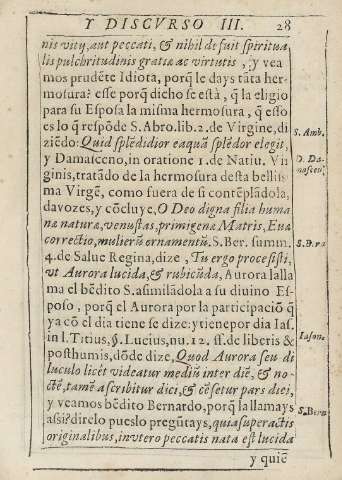 Y DISCVRSO III. 28
nis vity, aut peccati, & nihil defuit spiritua
lis pulchritudinis gratiæ ac virtutis, ; y vea
mos prudēte Idiota, porq̃ le days tāta her-
mosura? esse porq̃ dicho se està, q̃ la eligio
para su Esposa la misma hermosura, q̃ esso
es lo q̃ respōde S. Abro. lib. 2. de Virgine, di
ziēdo: Quid splēdidior eaquā splēdor elegit,
S. Amb.
y Damasceno, in oratione 1. de Natiu. Vir
D. Da-
ginis, tratādo de la hermosura desta belliss
nasceu.
ma Virgē, como fuera de si contēplādola,
da vozes, y cōcluye, O Deo digna filia huma
næ naturæ, venustas, primigenæ Matris, Euæ
correctio, mulierū ornamentū. S. Ber. summ.
4. de Salue Regina, dize, Tu ergo processisti,
vt Aurora lucida, & rubicūda, Aurora la lla
ma el bēdito S. asimilādola a su diuino Es-
poso, porq̃ el Aurora por la participaciō q̃
ya cō el dia tiene se dize: y tiene por dia Ias.
in l. Titius, §. Lucius, nu. 12. ff. de liberis &
Iason.
posthumis, dōde dize, Quod Aurora seu di
luculo licèt videatur mediū inter diē, & no-
ctē, tamē ascribitur dici, & cēsetur pars diei,
y veamos bēdito Bernardo, porq̃ la llamays
assi? direlo pues lo pregūtays, quia superactis
S. Bern
originalibus, in vtero peccatis nata est lucida
y quiē